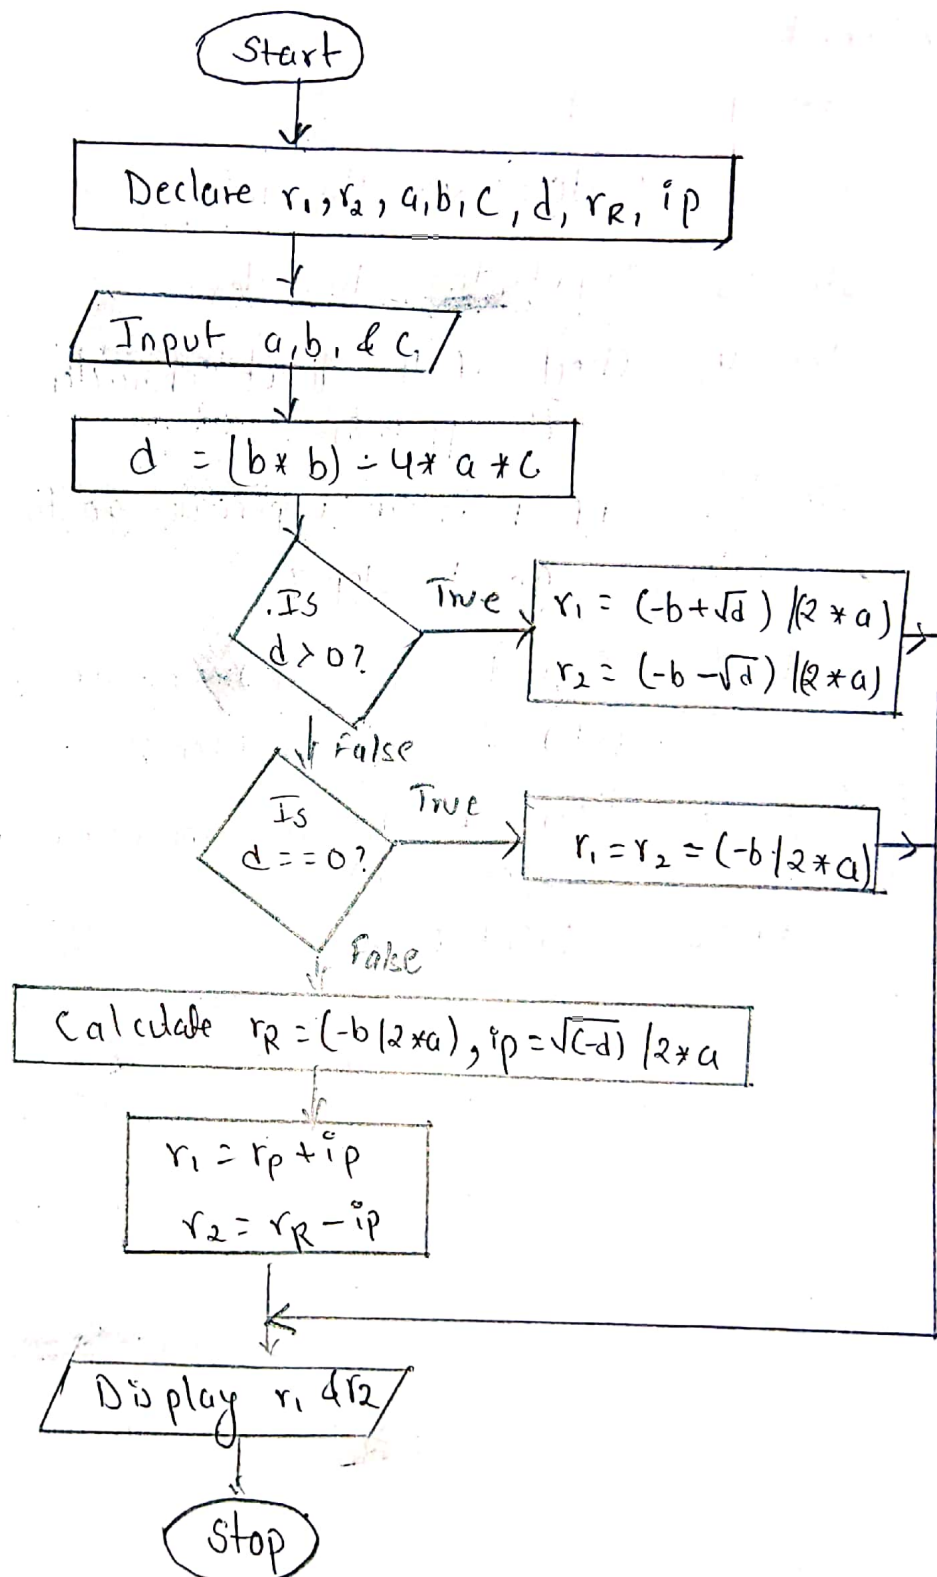 Start
Declare r₁, r₂, a, b, c, d, rR, ip
Input a, b, & c
d = (b * b) - 4 * a * c
Is
d > 0?
True
r₁ = (-b + √d) / (2 * a)
r₂ = (-b - √d) / (2 * a)
False
Is
d == 0?
True
r₁ = r₂ = (-b / 2 * a)
False
Calculate rR = (-b / 2 * a), ip = √(-d) / 2 * a
r₁ = rp + ip
r₂ = rR - ip
Display r₁ & r₂
Stop